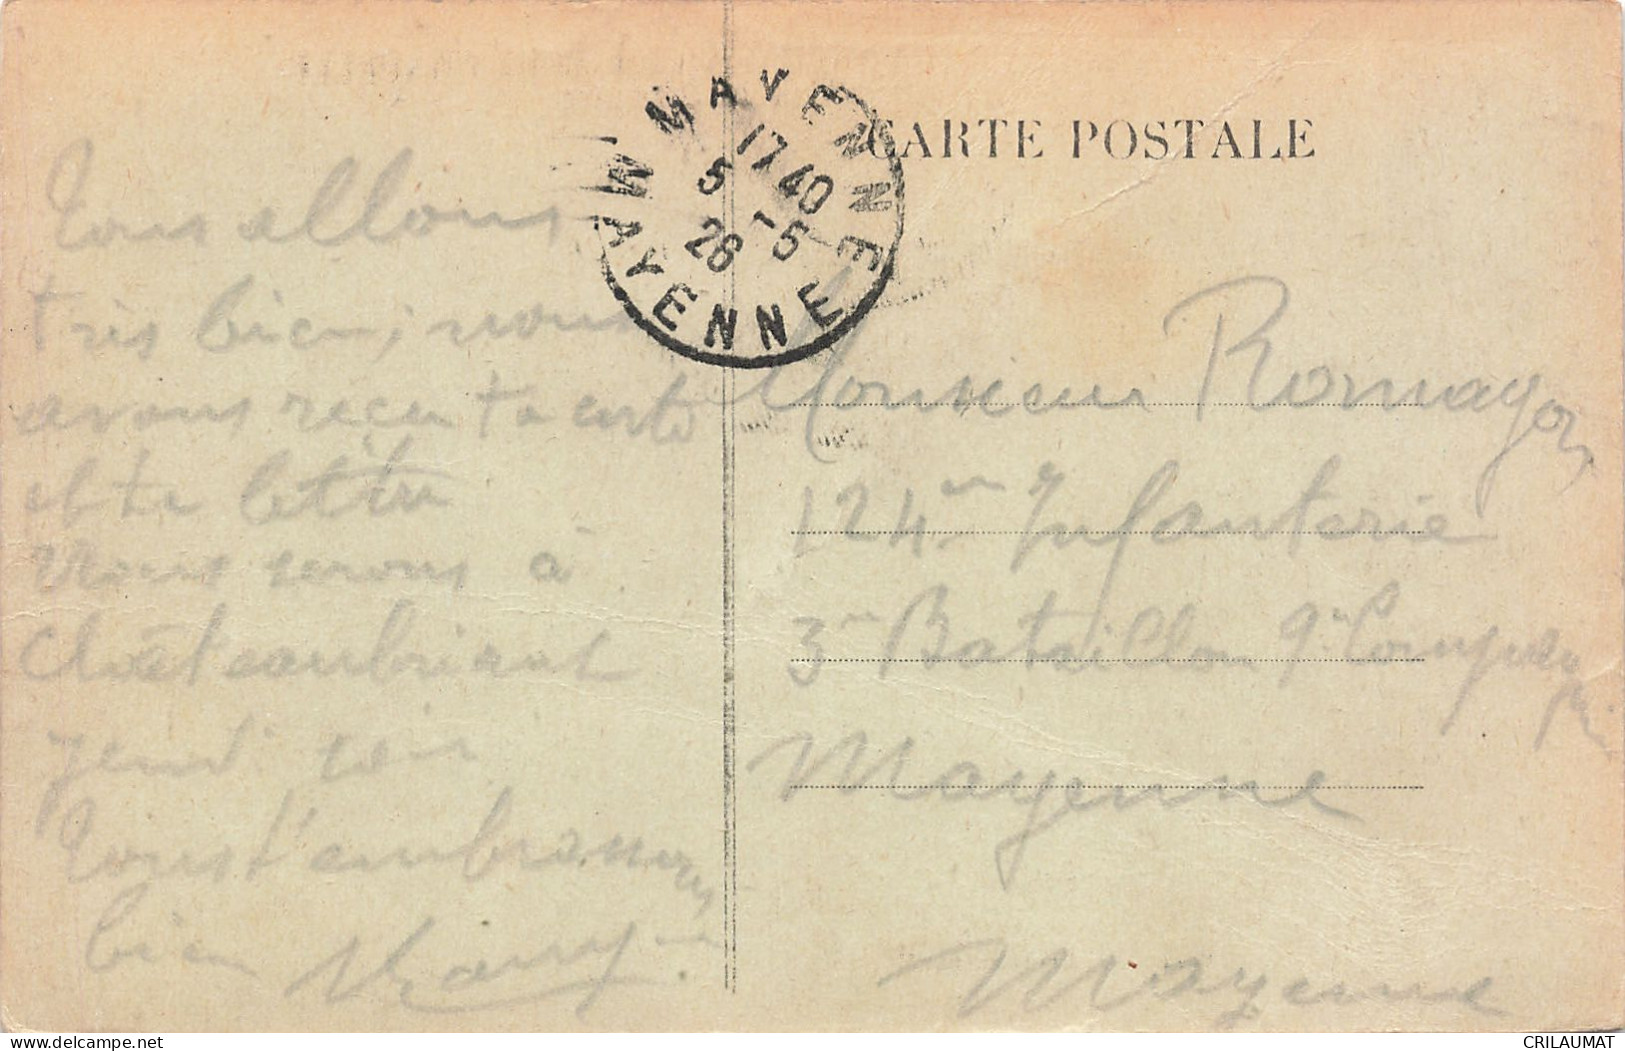 CARTE POSTALE
MAYENNE
17 40
5 -5
26
MAYENNE
Tous allons
très bien, nous
avons reçu ta carte
et ta lettre
Nous serons à
Châteaubriant
jeudi soir
Tous t'embrassons
bien
Monsieur Romagon
124me Infanterie
3me Bataillon 9e Compagnie
Mayenne
Mayenne
CRILAUMAT